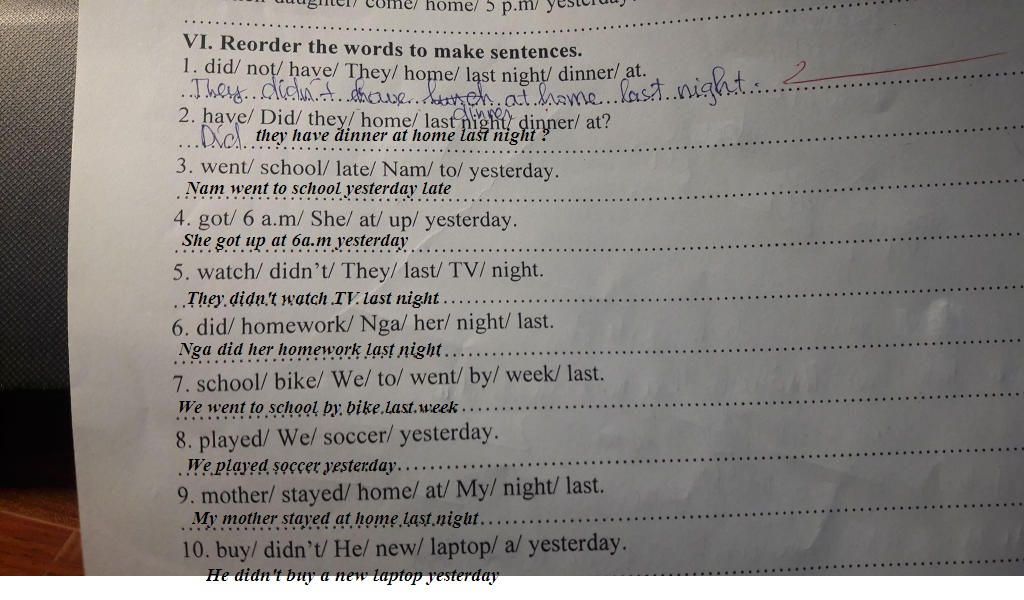 daughter/ come/ home/ 5 p.m/ yesterday
VI. Reorder the words to make sentences.
1. did/ not/ have/ They/ home/ last night/ dinner/ at.
They didn't have lunch at home last night.
dinner
2. have/ Did/ they/ home/ last night/ dinner/ at?
Did they have dinner at home last night ?
3. went/ school/ late/ Nam/ to/ yesterday.
Nam went to school yesterday late
4. got/ 6 a.m/ She/ at/ up/ yesterday.
She got up at 6a.m yesterday
5. watch/ didn't/ They/ last/ TV/ night.
They didn't watch TV last night
6. did/ homework/ Nga/ her/ night/ last.
Nga did her homework last night
7. school/ bike/ We/ to/ went/ by/ week/ last.
We went to school by bike last week
8. played/ We/ soccer/ yesterday.
We played soccer yesterday
9. mother/ stayed/ home/ at/ My/ night/ last.
My mother stayed at home last night
10. buy/ didn't/ He/ new/ laptop/ a/ yesterday.
He didn't buy a new laptop yesterday